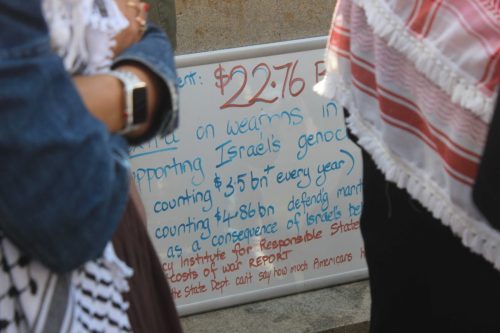 ent: $22.76 B
on wearms in
pporting Israel's genoc
counting $3.5bn+ every year)
counting $4.86bn defend'g mari
as a consequence of Israel's be
cy Institute for Responsible State
costs of war REPORT
the State Dept. can't say how much Americans h